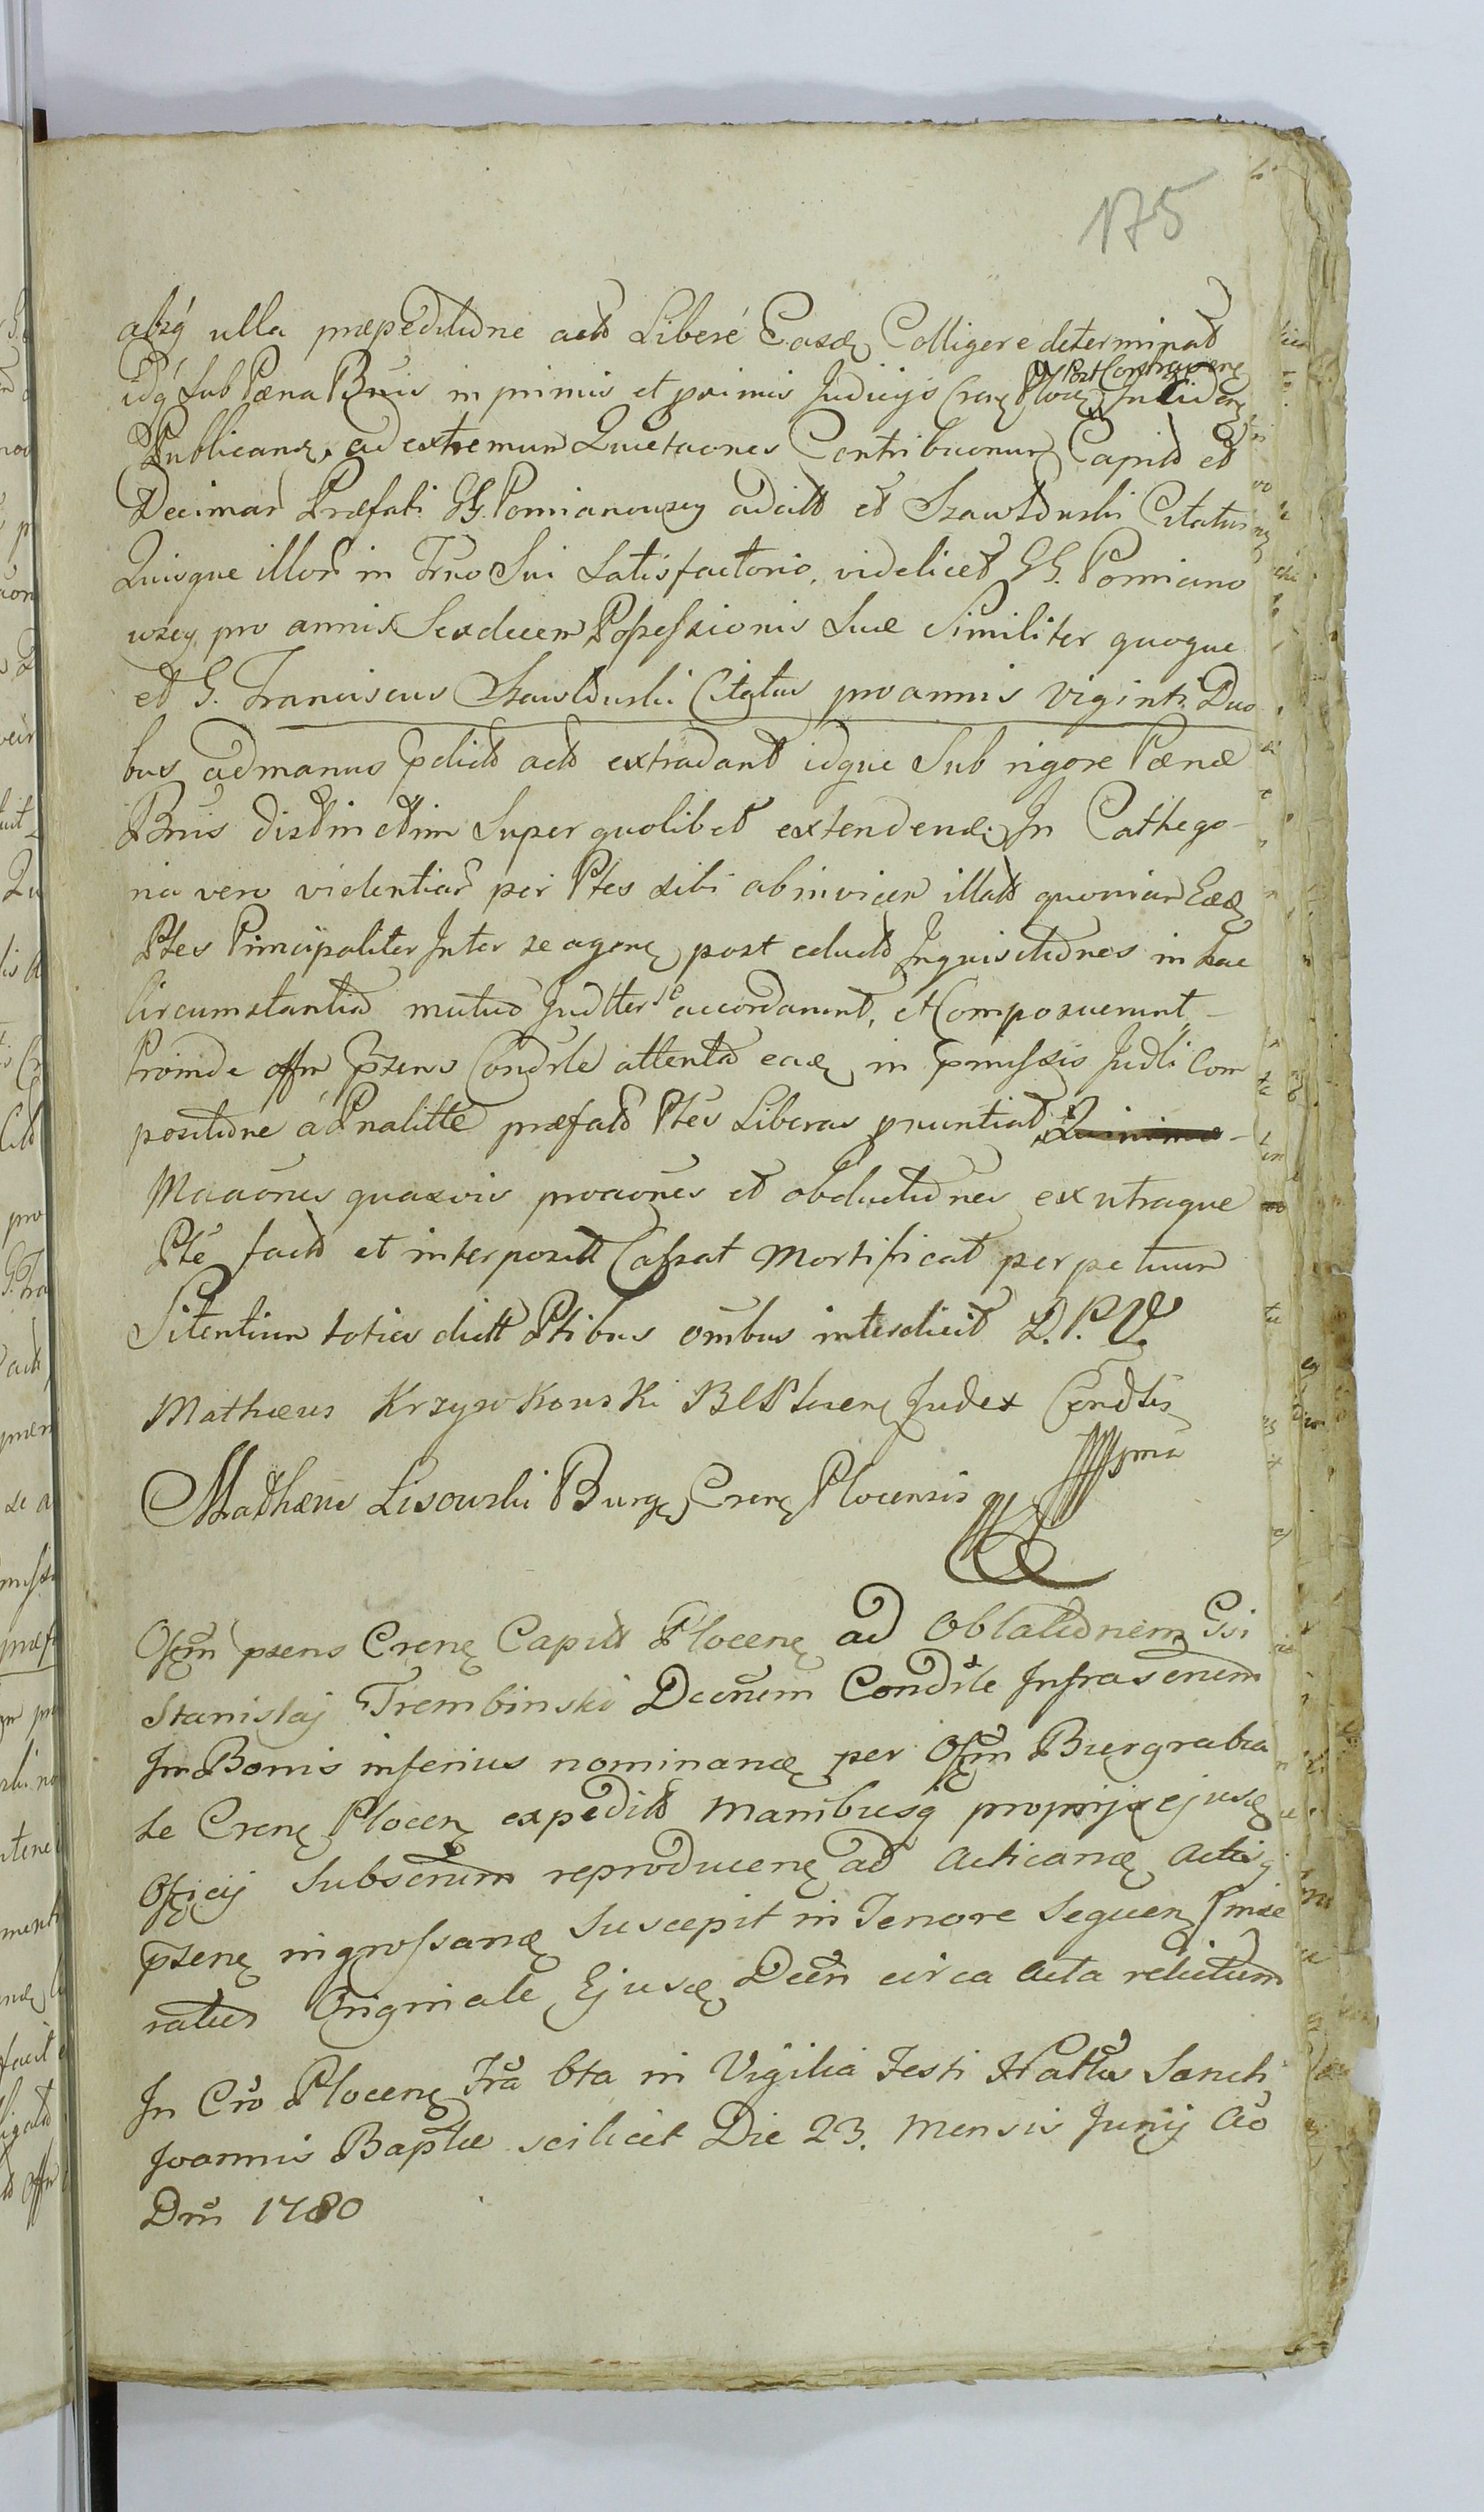 175
absq́ ulla præpeditione actõ Liberé Easdę Colligere determinat
idq́ Sub Pæna Bnis in primis et primis Judicijs Crenę Plocę Post Contravenę Incidenę
Publicandę. ad extremum Quietaones Contribuonum Capitõ et
Decimar Præfati GG. Pomianowscy aditõ et Szawłduski Citatus
Quisque illor in Trno Sui Satisfactorio, videlicet GG. Pomiano
wscy pro annis Sexdecem Possessionis Suæ Similiter quoque
et G. Franciscus Szawłduski Citatus pro annis Viginti Duo
bus ad manus pdictõ actõ extradant idque Sub rigore Pænæ
Bnis distinctim Super quolibet extendendæ. In Cathego-
ria vero violentiar per Ptes sibi abinvicem illatõ quoniam Eædę
Ptes Principaliter Inter se agenę post eductõ Inquisitiones in hac
Circumstantia mutuo Judlter se accordarunt, et Composuerunt
Proinde offm psens Condsle attenta eadę in pmissis Judli Com
positione á Pnalitte præfatõ Ptes Liberas pnuntiat
Maaones quasvis proaones et obductiones ex utraque
Pte factõ et interpositõ Cassat Mortificat perpetuum
Silentium toties dictõ Ptibus ombus interdicit D.P.V.
Mathæus Krzywkowski B C Plocenę Judex Condslis
Mathæus Lisowski Burgę Crenę Plocensis mpria
Offm psens Crenę Capitõ Plocenę ad Oblationem Gsi
Stanislaj Trembinski Decrtum Condsle Infrascrtum
In Bonis inferius nominandę per Offm Burgrabia
le Crenę Plocenę expeditõ Manibusq́ proprijs ejusdę
Officij Subscrtum reproducenę ad Acticandę Actisq́
psenę ingrossandę Suscepit in Tenore Sequenę
ratus Originale Ejusdę Decrti circa Acta relictum
In Cro Plocenę Fra 6ta in Vigilia Festi Natttis Sancti
Joannis Baptæ scilicet Die 23. Mensis Junij Ao
Dni 1780